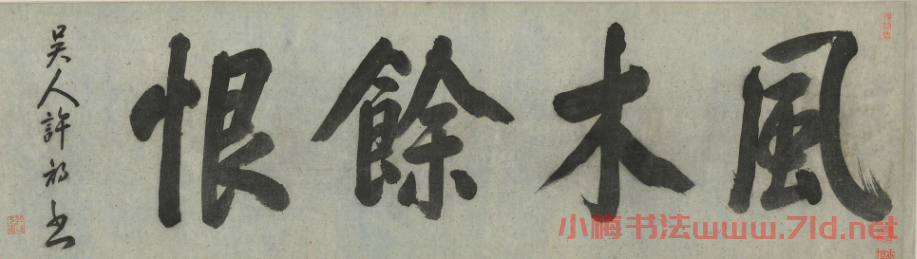 風木餘恨
吳人許初書
小梅书法www.7ld.net